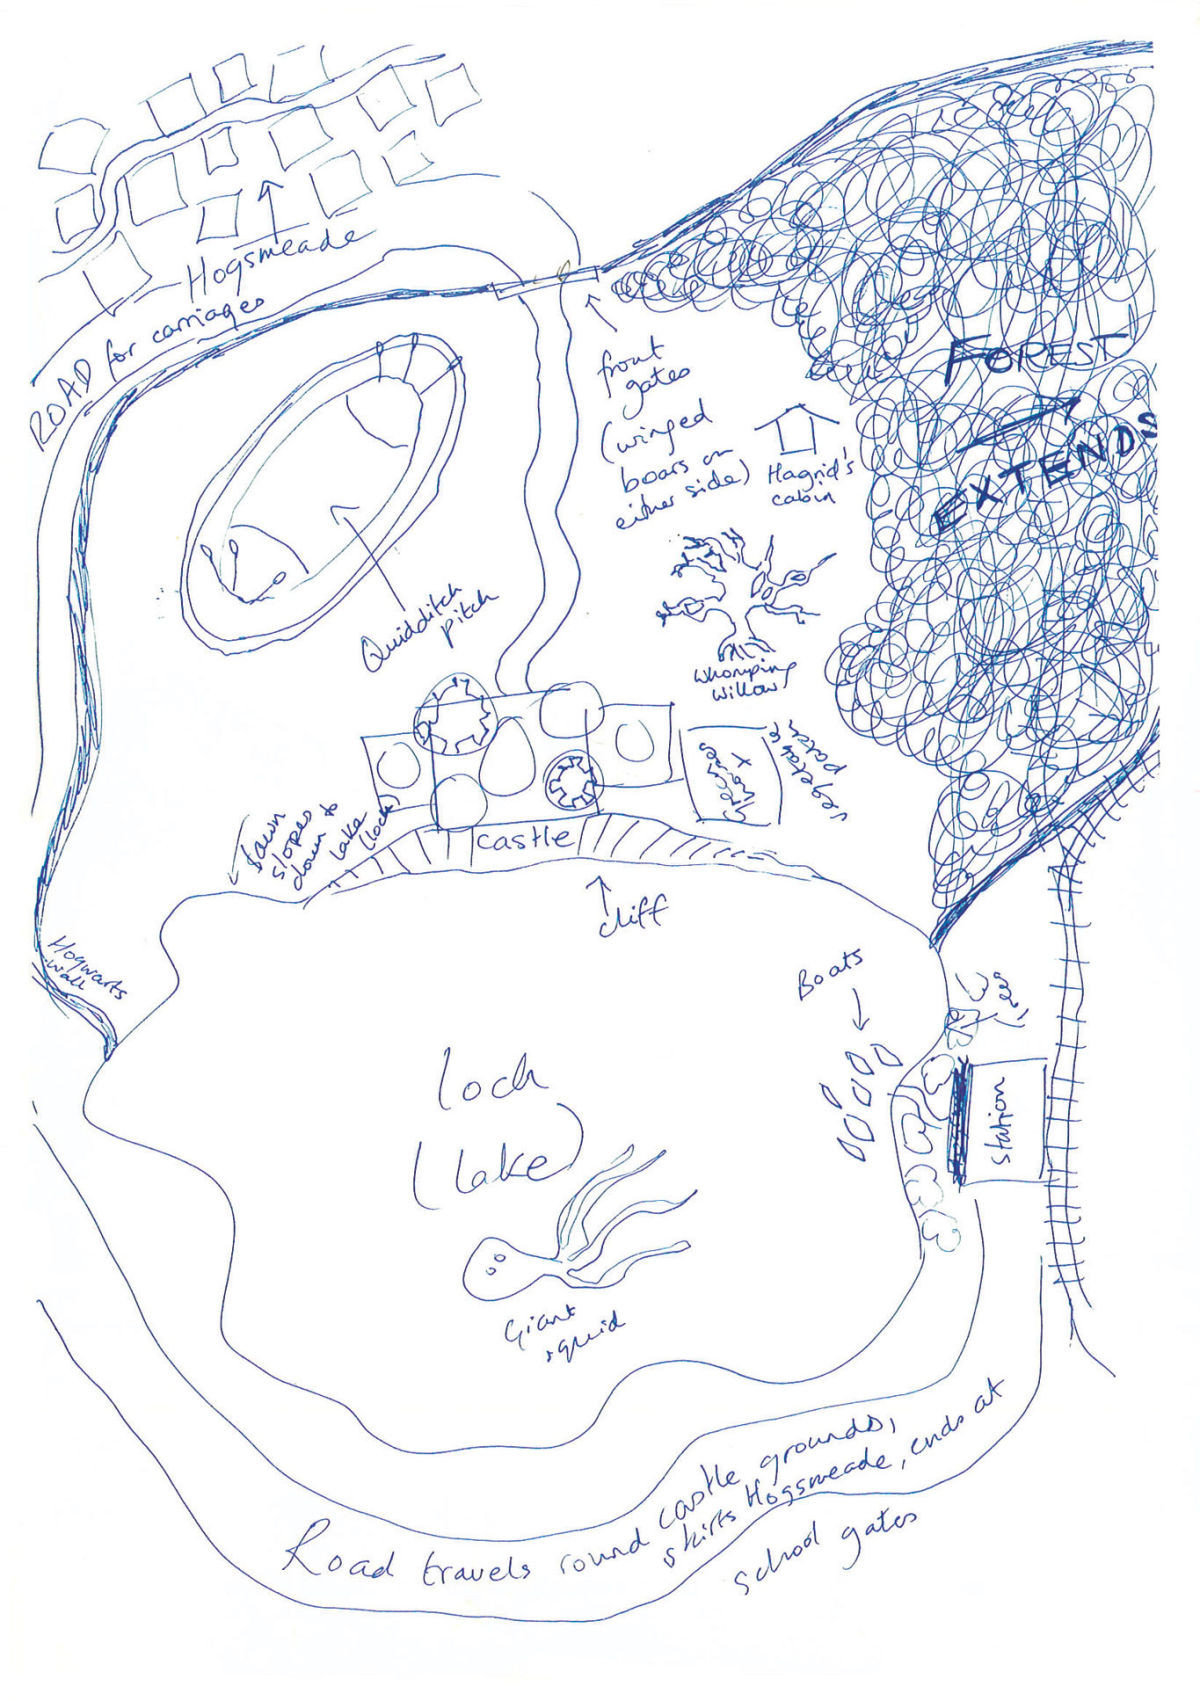 Hogsmeade
ROAD for carriages
front
gates
(winged
boars on
either side)
Hagrid's
cabin
FOREST
EXTENDS
Quidditch
pitch
Whomping
Willow
vegetable
patch
lawn
slopes
down to
lake
(loch)
castle
cliff
Hogwarts
wall
Boats
trees
loch
(lake)
station
Giant
squid
Road travels round castle grounds,
skirts Hogsmeade, ends at
school gates